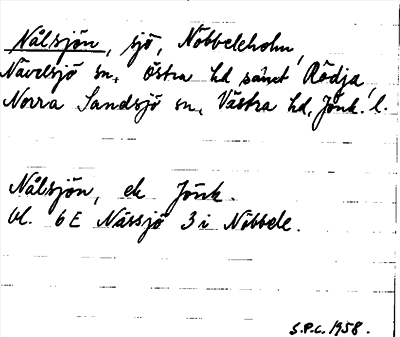 Nålsjön, sjö, Nöbbeleholm,
Nävelsjö sn, Östra hd samt Rödja,
Norra Sandsjö sn, Västra hd, Jönk. l.
Nålsjön, ek Jönk.
bl. 6E Nässjö 3 i Nöbbele.
S.P.C. 1958.